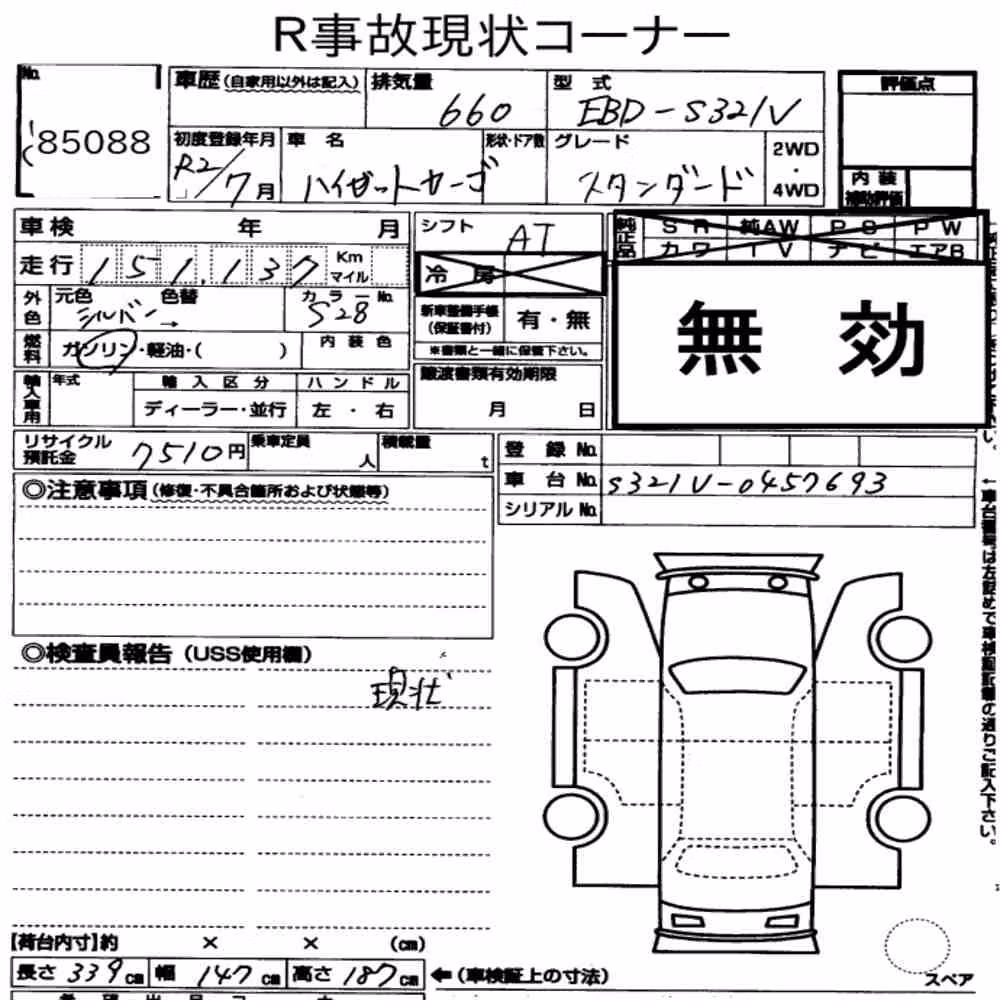 R事故現状コーナー
No. 車歴(自家用以外は記入) 排気量 660 型式 EBD-S321V 評価点
85088
初度登録年月 R2/7月 車名 ハイゼットカーゴ 形状・ドア数 グレード スタンダード 2WD・4WD 内装補助評価
車検 年 月 シフト AT 純正品 SR 純AW PS PW
走行 151,137 Km マイル 冷房 カワ TV ナビ エアB
外色 元色 シルバー 色替 → カラーNo. S28 新車整備手帳(保証書付) 有・無 無効
燃料 ガソリン・軽油・( ) 内装色 ※書類と一緒に保管下さい。
輸入車用 年式 輸入区分 ハンドル 譲渡書類有効期限
ディーラー・並行 左・右 月 日
リサイクル預託金 7510円 乗車定員 人 積載量 t 登録No.
車台No. S321V-0457693
◎注意事項(修復・不具合箇所および状態等) シリアルNo.
←車台番号は左詰めで車検証記載の通りご記入下さい。
◎検査員報告(USS使用欄)
現状
【荷台内寸】約 × × (cm)
長さ 339cm 幅 147cm 高さ 187cm ←(車検証上の寸法) スペア